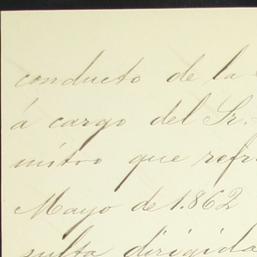 conducto de la
á cargo del Sr.
nistro que refr
Mayo de 1.862
sulta dirigida